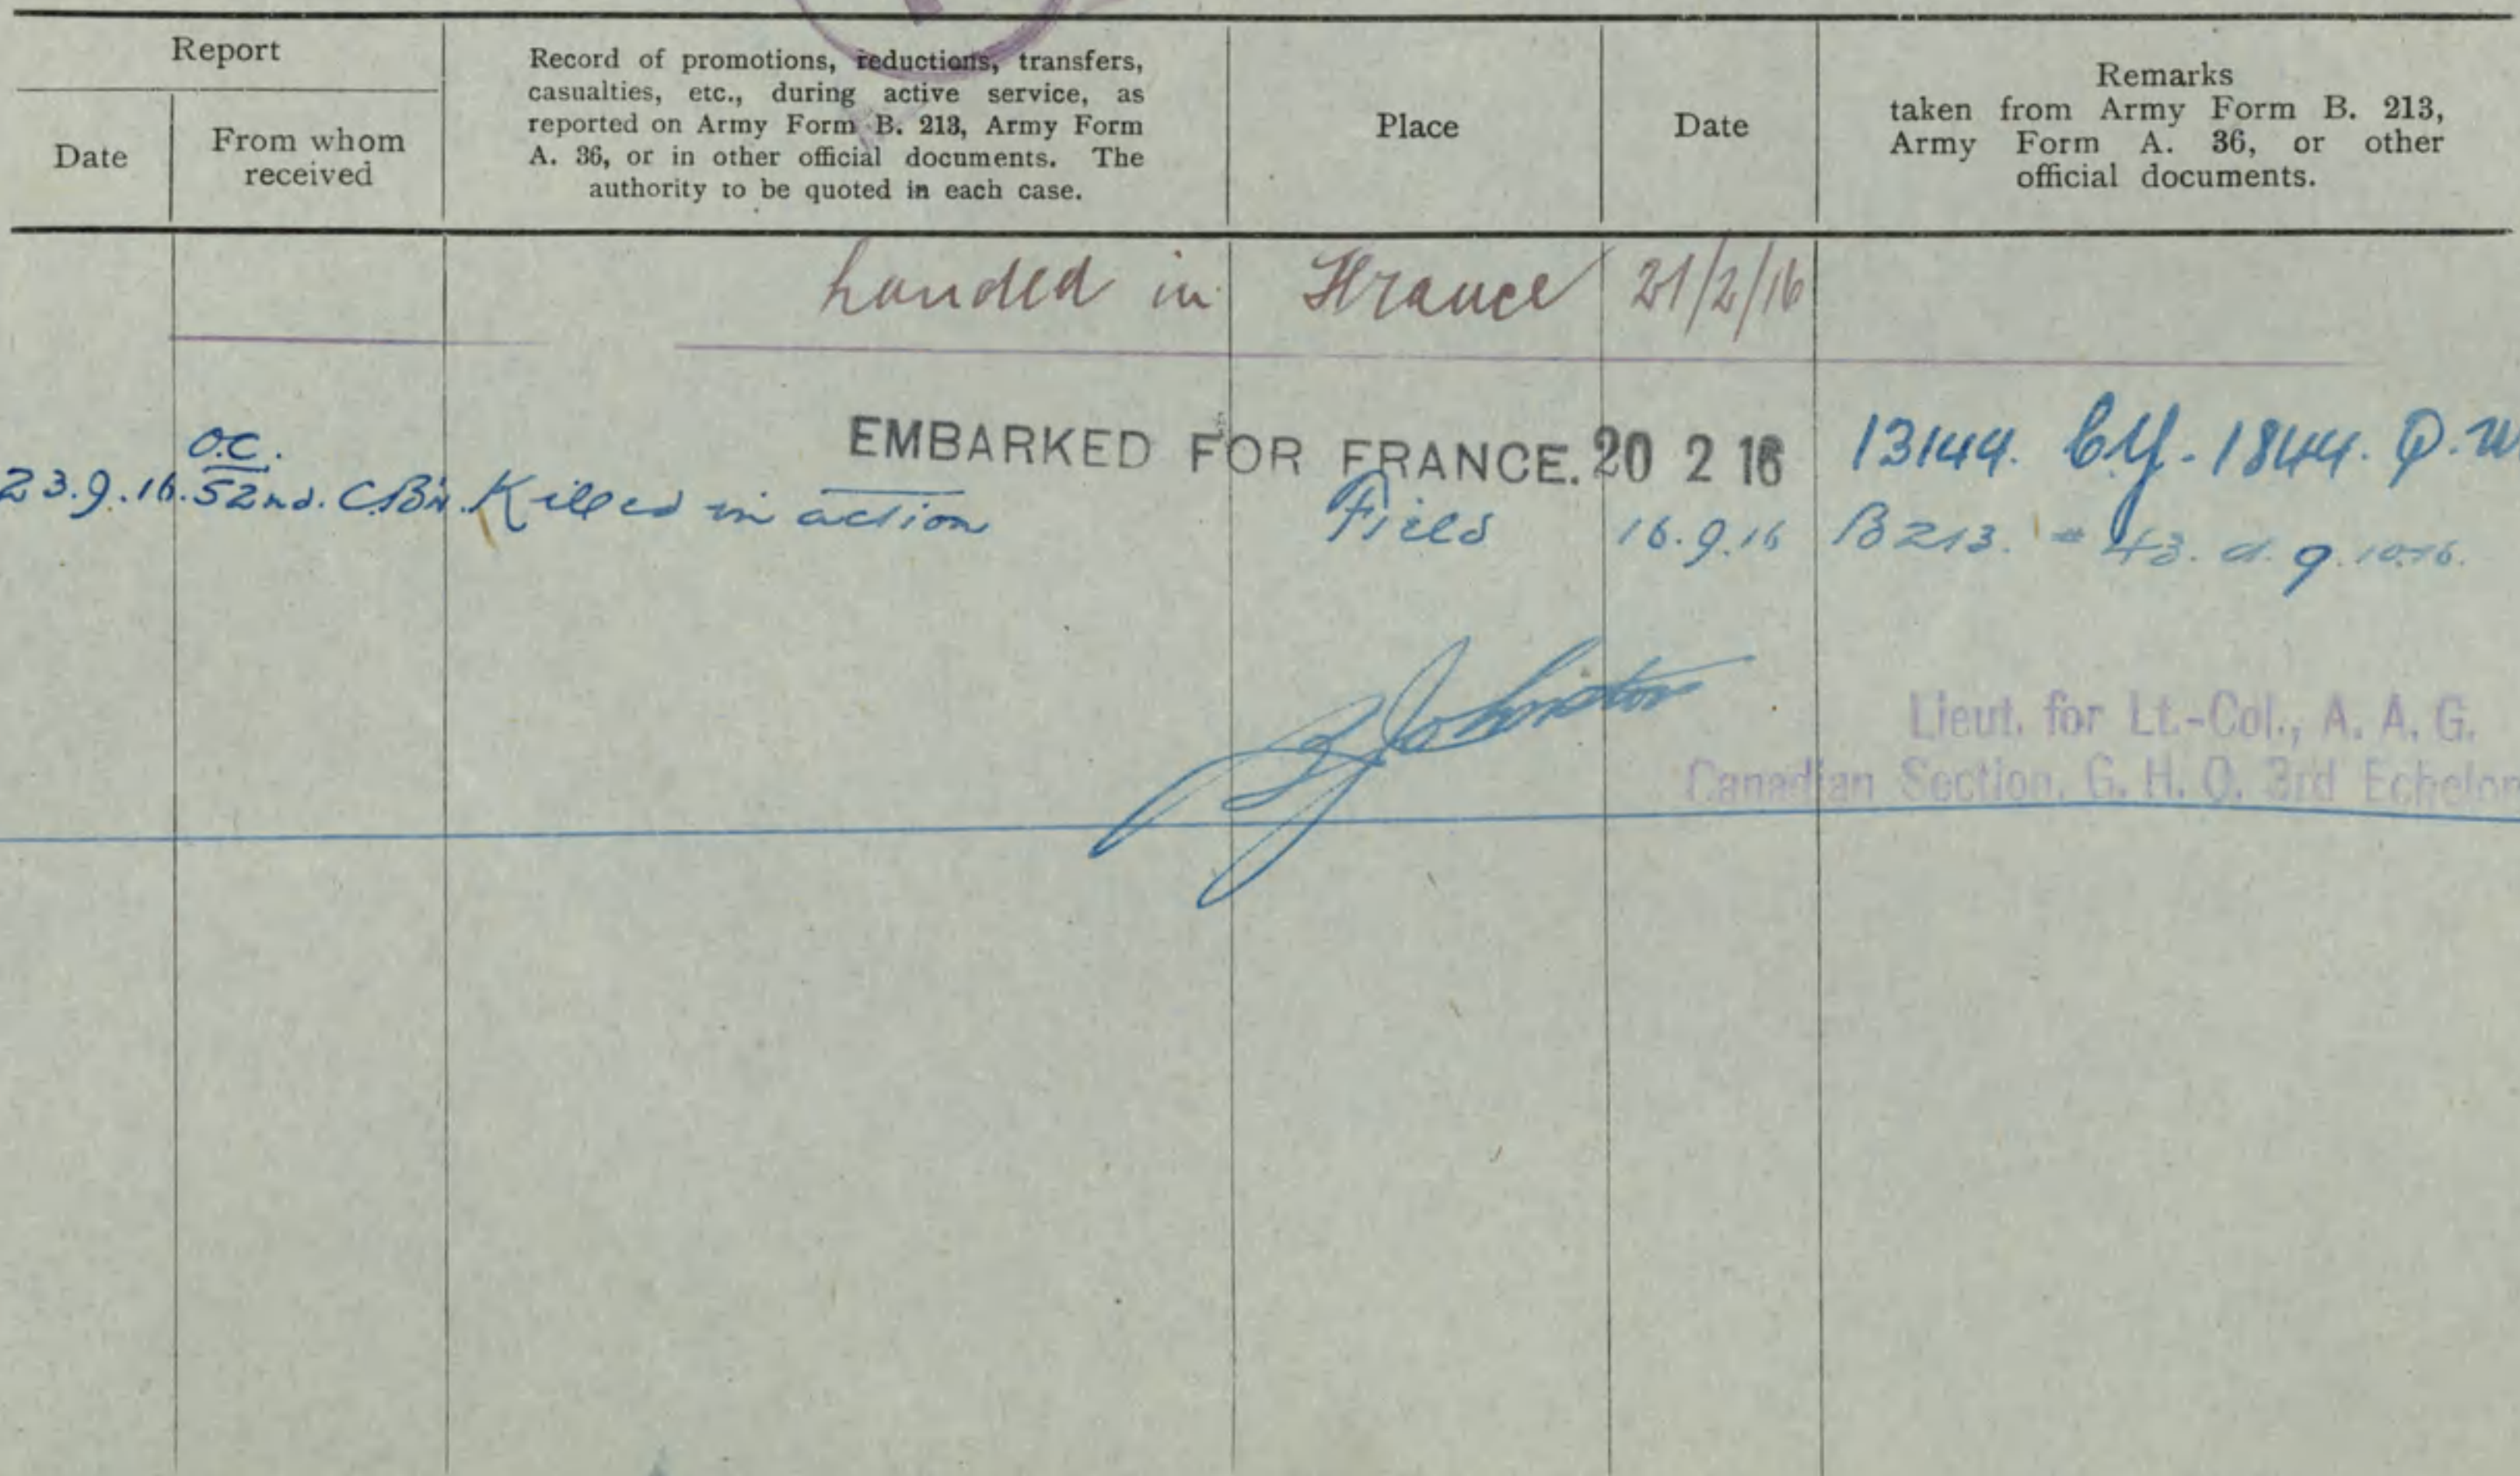 Report
Date
From whom
received
Record of promotions, reductions, transfers,
casualties, etc., during active service, as
reported on Army Form B. 213, Army Form
A. 36, or in other official documents. The
authority to be quoted in each case.
Place
Date
Remarks
taken from Army Form B. 213,
Army Form A. 36, or other
official documents.
Landed in France 21/2/16
EMBARKED FOR FRANCE. 20 2 16
13144. 1844.
O.C.
23.9.16. 52nd. C.Bn. Killed in action Field 16.9.16 B213. 43. d. 9.10.16.
Johnston
Lieut. for Lt.-Col., A. A. G.
Canadian Section, G. H. Q. 3rd Echelon